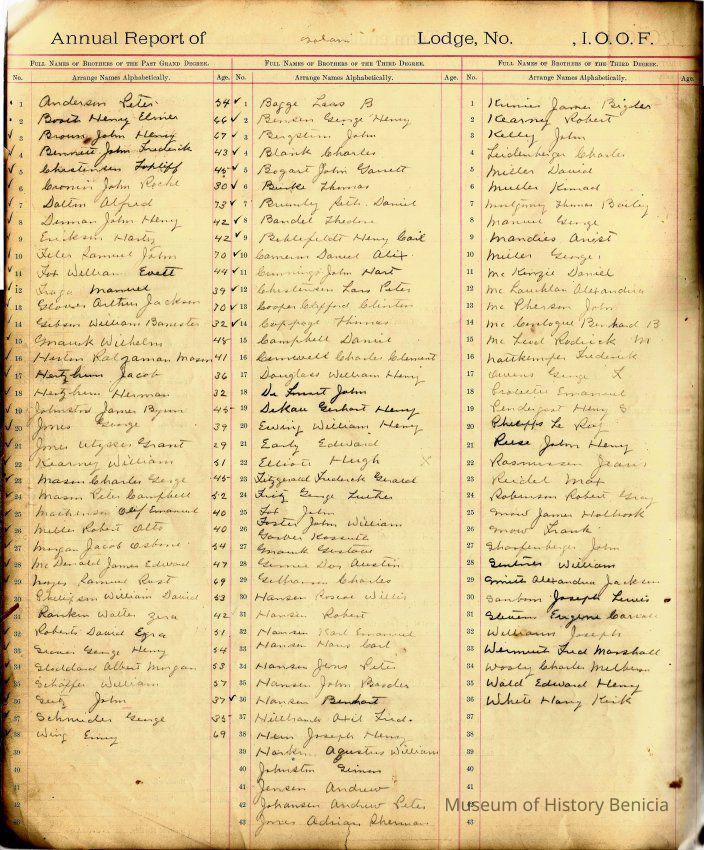 Annual Report of Solano Lodge, No. , I.O.O.F.
Full Names of Brothers of the Past Grand Degree.
No. Arrange Names Alphabetically. Age.
1 Anderson Peter 54
2 Henry Elmer 66
3 Brown John Henry 67
4 Bennett John Frederick 43
5 Christensen 45
6 Cronin John Roche 30
7 Dalton Alfred 73
8 Denman John Henry 42
9 Erickson Harry 42
10 Samuel John 70
11 Fox William Evett 44
12 Fraga Manuel 39
13 Glover Arthur Jackson 70
14 Gibson William Banester 32
15 Gnauck Wilhelm 48
16 Heston Mason 41
17 Jacob 36
18 Herman 32
19 Johnston James Byrne 45
20 Jones George 39
21 Jones Ulysses Grant 29
22 Kearney William 51
23 Mason Charles George 45
24 Mason Peter Campbell 52
25 Olef Emanuel 40
26 Miller Robert Otto 40
27 Morgan Jacob Osborne 54
28 Mc Donald James Edward 47
29 Noyes Samuel Rust 69
30 William David 53
31 Rankin Walter Ezra 42
32 Roberts David Ezra 51
33 George Henry 54
34 Stoddard Albert Morgan 53
35 Schaffer William 57
36 John 37
37 Schneider George 35
38 Wing 69
39
40
41
42
43
Full Names of Brothers of the Third Degree.
No. Arrange Names Alphabetically. Age.
1 Bogge Lars B
2 Benson George Henry
3 Bergstrom John
4 Blank Charles
5 Bogart John Garrett
6 Burke Thomas
7 Brumly Seth Daniel
8 Bandel Theodore
9 Henry Carl
10 Cameron Daniel Alix.
11 Cunnings John Hart
12 Christensen Lars Peter
13 Cooper Clifford Clinton
14 Coppage Thomas
15 Campbell Daniel
16 Charles Clement
17 Douglass William Henry
18 John
19 DeKau Gerhart Henry
20 Ewing William Henry
21 Early Edward
22 Elliott Hugh X
23 Fitzgerald Frederick Gerald
24 Fritz George Luther
25 Fox John
26 Foster John William
Garber Kossuth
27 Gnauck Gustave
28 Austin
29 Charles
30 Hansen Roscoe Willis
31 Hansen Robert
32 Hansen Karl Emanuel
33 Hansen Hans Carl
34 Hansen Jens Peter
35 Hansen John
36 Hansen Bernhart
37 Hillbrands Axil Fred.
38 Hein Joseph Henry
39 Agustus William
40 Johnston Simon
41 Jensen Andrew
42 Johansen Andrew Peter
43 Jones Adrian Sherman
Full Names of Brothers of the Third Degree.
No. Arrange Names Alphabetically. Age.
1 James Bigler
2 Kearney Robert
3 Kelly John
4 Leidenberger Charles
5 Miller David
6 Mueller Konrad
7 Thomas Bailey
8 Manuel George
9 Mandies
10 Miller George
11 Mc Kenzie Daniel
12 Mc Lauchlan Alexandria
13 Mc Pherson John
14 Mc Bernhard B
15 Mc Leod Rodrick M
16 Naukemper Frederick
17 Owens George L
18 Emanuel
19 Pendegast Henry S
20 Phelps Le Roy
21 Rose John Henry
22 Rasmussen
23 Reidel Max
24 Robinson Robert Gray
25 Snow James Holbrook
26 Snow Frank
27 Scharfenberger John
28 William
29 Alexandria Jackson
30 Sanborn Joseph Lewis
31 Stevens Eugene
32 Williams Joseph
33 Fred Marshall
34 Charles
35 Wald Edward Henry
36 White Harry Kirk
37
38
39
40
41
42
43
Museum of History Benicia